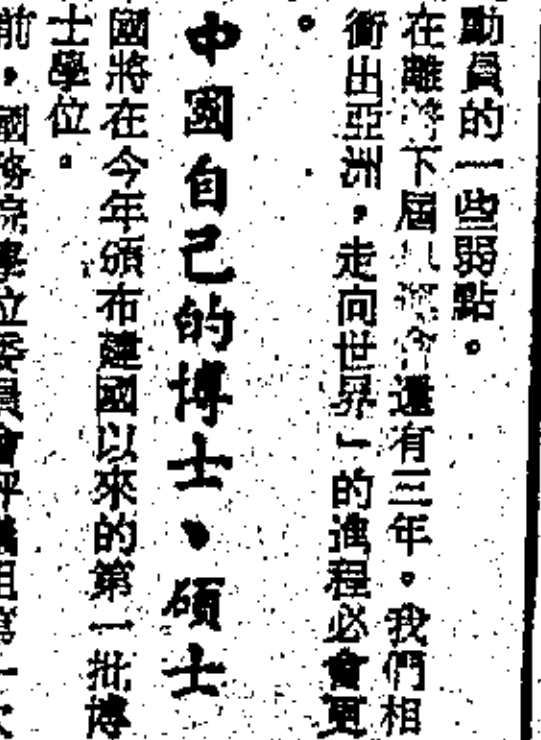 動員的一些弱點。
在離下屆還有三年。我們相
衝出亞洲,走向世界」的進程必會更
。
中國自己的博士、碩士
國將在今年頒布建國以來的第一批博
士學位。
前,國務院學位委員會評議組第一次